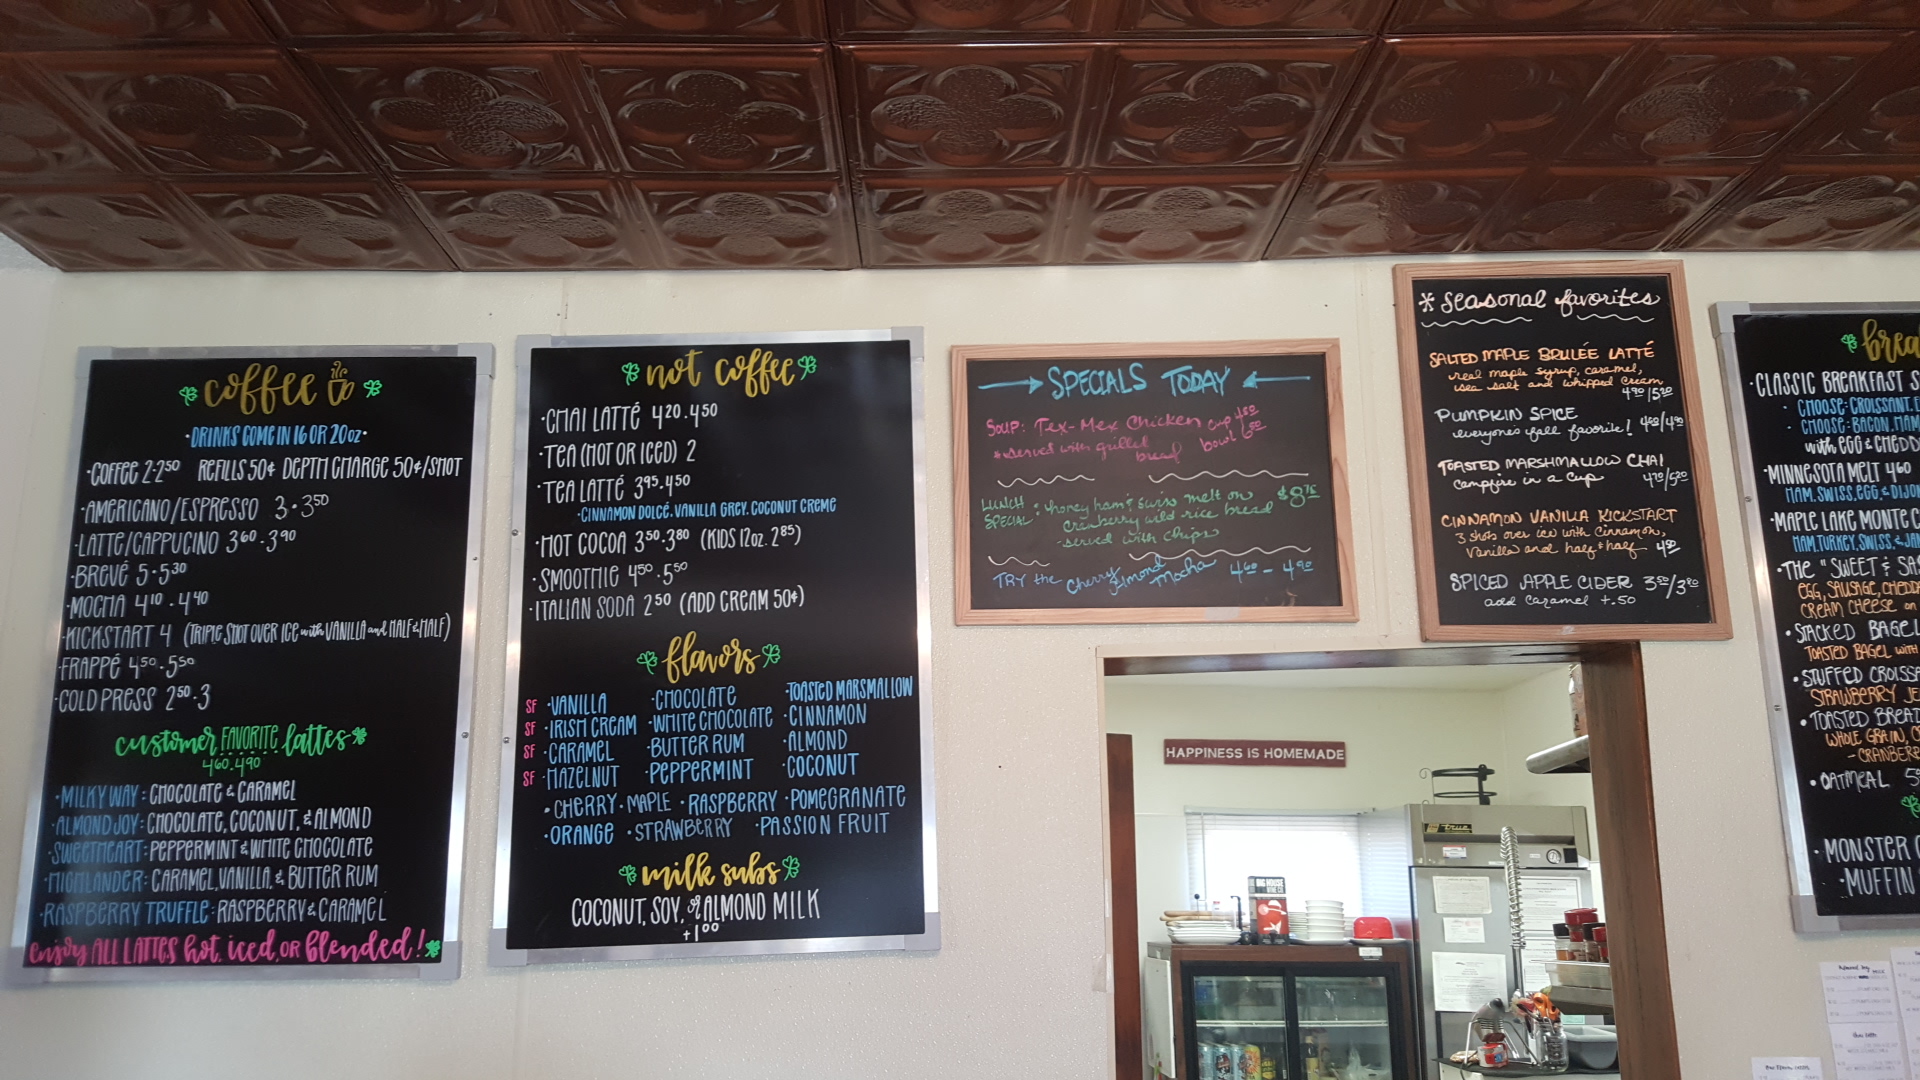 coffee
·DRINKS COME IN 16 OR 20oz·
·COFFEE 2·2⁵⁰ REFILLS 50¢ DEPTH CHARGE 50¢/SHOT
·AMERICANO/ESPRESSO 3·3⁵⁰
·LATTE/CAPPUCINO 3⁶⁰·3⁹⁰
·BREVÉ 5·5³⁰
·MOCHA 4¹⁰·4⁴⁰
·KICKSTART 4 (TRIPLE SHOT OVER ICE with VANILLA and HALF & HALF)
·FRAPPÉ 4⁵⁰·5⁵⁰
·COLD PRESS 2⁵⁰·3
customer FAVORITE lattes
4⁶⁰·4⁹⁰
·MILKY WAY: CHOCOLATE & CARAMEL
·ALMOND JOY: CHOCOLATE, COCONUT, & ALMOND
·SWEETHEART: PEPPERMINT & WHITE CHOCOLATE
·HIGHLANDER: CARAMEL, VANILLA, & BUTTER RUM
·RASPBERRY TRUFFLE: RASPBERRY & CARAMEL
enjoy ALL LATTES hot, iced, OR blended!
not coffee
·CHAI LATTÉ 4²⁰·4⁵⁰
·TEA (HOT OR ICED) 2
·TEA LATTÉ 3⁹⁵·4⁵⁰
·CINNAMON DOLCÉ·VANILLA GREY·COCONUT CREME
·HOT COCOA 3⁵⁰·3⁸⁰ (KIDS 12oz. 2⁸⁵)
·SMOOTHIE 4⁵⁰·5⁵⁰
·ITALIAN SODA 2⁵⁰ (ADD CREAM 50¢)
flavors
SF ·VANILLA ·CHOCOLATE ·TOASTED MARSMALLOW
SF ·IRISH CREAM ·WHITE CHOCOLATE ·CINNAMON
SF ·CARAMEL ·BUTTER RUM ·ALMOND
SF ·HAZELNUT ·PEPPERMINT ·COCONUT
·CHERRY ·MAPLE ·RASPBERRY ·POMEGRANATE
·ORANGE ·STRAWBERRY ·PASSION FRUIT
milk subs
COCONUT, SOY, or ALMOND MILK
+1⁰⁰
SPECIALS TODAY
SOUP: Tex-Mex Chicken cup 4⁵⁰
*served with grilled bread bowl 6⁵⁰
LUNCH SPECIAL: honey ham & swiss melt on $8⁷⁵
cranberry wild rice bread
-served with chips
TRY the Cherry Almond Mocha 4⁶⁰ - 4⁹⁰
* seasonal favorites
SALTED MAPLE BRULÉE LATTÉ
real maple syrup, caramel,
sea salt and whipped cream
4⁹⁰/5²⁰
PUMPKIN SPICE
everyone's fall favorite! 4⁶⁰/4⁹⁰
TOASTED MARSHMALLOW CHAI
campfire in a cup 4⁷⁰/5²⁰
CINNAMON VANILLA KICKSTART
3 shots over ice with cinnamon,
vanilla and half & half 4⁵⁰
SPICED APPLE CIDER 3⁵⁰/3⁸⁰
add caramel +.50
·CLASSIC BREAKFAST
· CHOOSE: CROISSANT,
· CHOOSE: BACON, HAM,
with EGG &
·MINNESOTA MELT 4⁶⁰
HAM, SWISS, EGG, &
·MAPLE LAKE MONTE
HAM, TURKEY, SWISS, &
·THE "SWEET &
EGG, SAUSAGE,
CREAM CHEESE on
·STACKED BAGEL
TOASTED BAGEL WITH
·STUFFED
STRAWBERRY
·TOASTED
WHOLE GRAIN,
·OATMEAL
·MONSTER
·MUFFIN
HAPPINESS IS HOMEMADE
true
BIG HOUSE